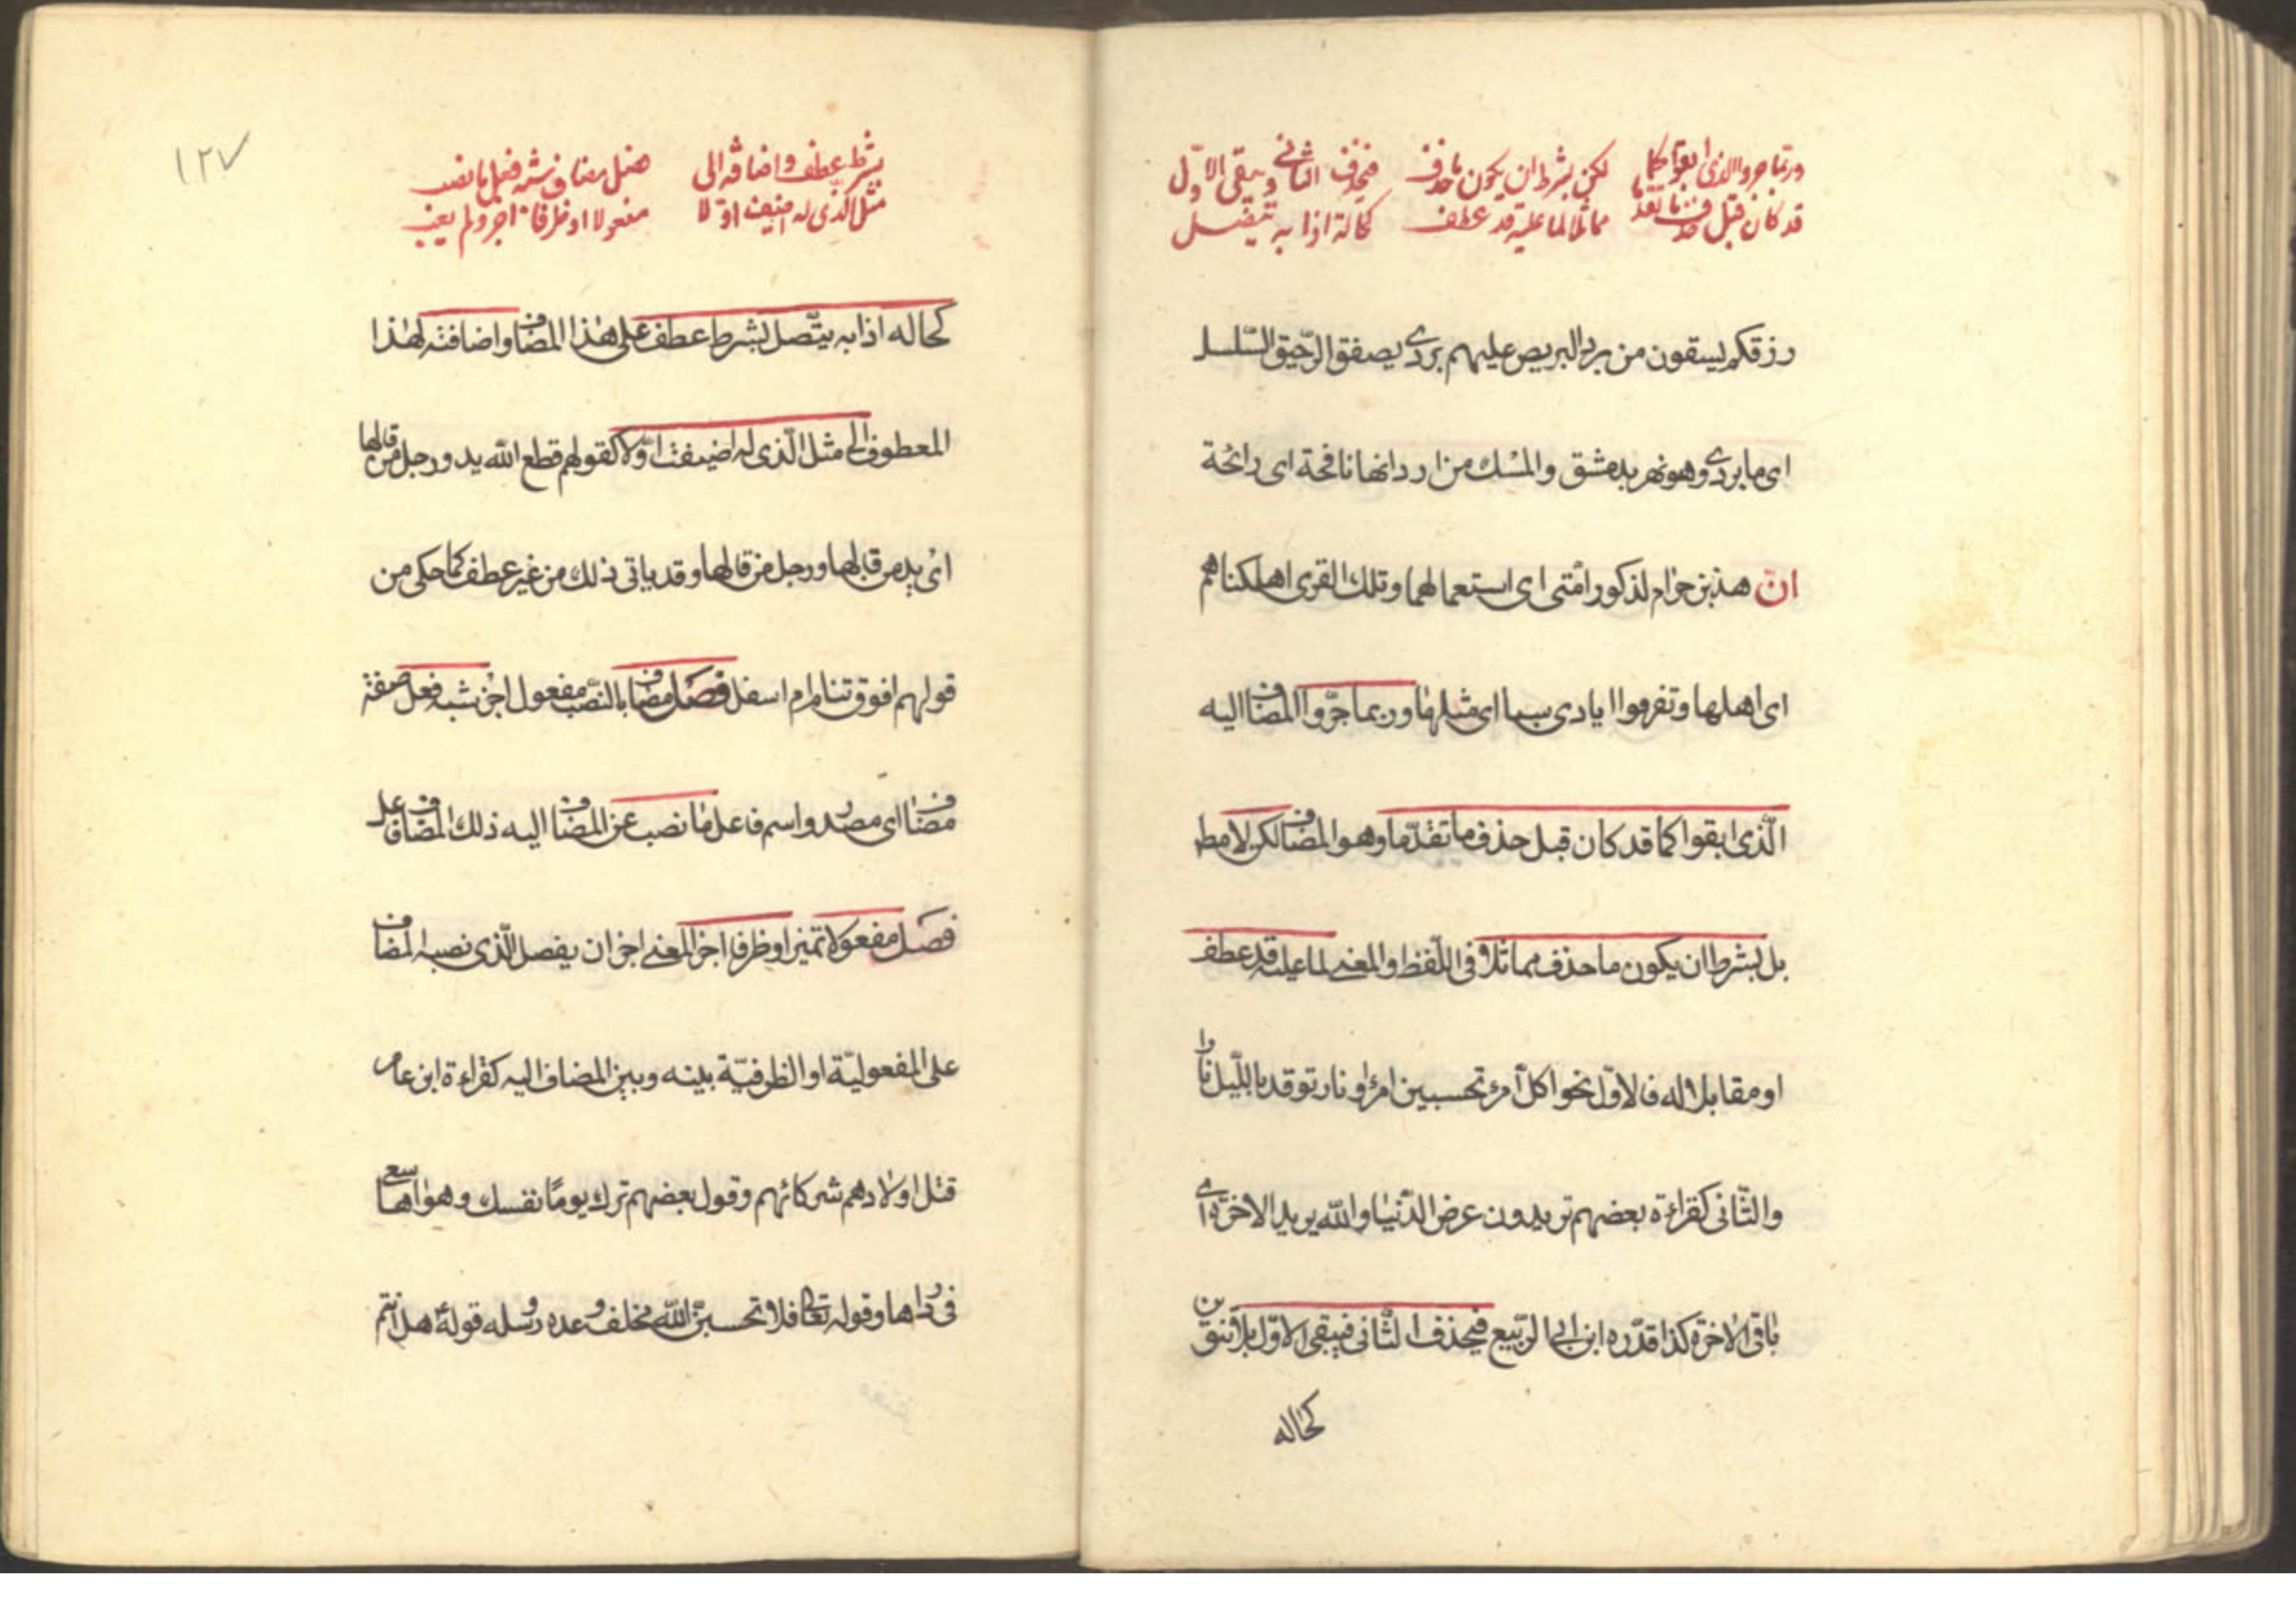 وربما جروا الذي ابقوا كما    لكن بشرط ان يكون ما حذف    فيحذف الثاني ويبقى الاوّل
قد كان قبل حذف ما تقدّما    مماثلا لما عليه قد عطف    كحاله اذا به يتّصل
رزقكم يسقون من برد البريص عليهم بردى يصفق الرّحيق السّلسل
اى ما بردى وهو نهر بدمشق والمسك من اردانها نافحة اى رائحة
انّ هذين حرام لذكور امّتى اى استعمالهما وتلك القرى اهلكناهم
اى اهلها وتفرقوا ايادى سبا اى مثلها وربما جرّوا المضاف اليه
الّذى ابقوا كما قد كان قبل حذف ما تقدّما وهو المضاف لكن لا مط
بل بشرط ان يكون ما حذف مماثلا فى اللّفظ والمعنى لما عليه قد عطف
او مقابلا له فالاوّل نحو اكلّ امرئ تحسبين امرأ ونار توقد باللّيل نارا
والثّانى كقراءة بعضهم تريدون عرض الدّنيا والله يريد الاخرة اى
باقى الاخرة كذا قدّره ابن ابى الرّبيع فيحذف الثّانى فيبقى الاوّل بلا تنوين
كحاله
١٢٧
بشرط عطف واضافة الى    فصل مضاف شبه فعل ما نصب
مثل الّذى له اضيفت اوّلا    مفعولا او ظرفا اجز ولم يعب
كحاله اذا به يتّصل بشرط عطف على هذا المضاف واضافته لهذا
المعطوف الى مثل الّذى له اضيفت اوّلا كقولهم قطع الله يد ورجل من قالها
اى يد من قالها ورجل من قالها وقد ياتى ذلك من غير عطف كما حكى من
قولهم افوق تنام ام اسفل فصل مضاف بالنّصب مفعول اجز شبه فعل صفة
مضاف اى مصدر واسم فاعل ما نصب عن المضاف اليه ذلك المضاف فاعل
فصل مفعولا تميز او ظرفا اجز المعنى اجز ان يفصل الّذى نصبه المضاف
على المفعوليّة او الظرفيّة بينه وبين المضاف اليه كقراءة ابن عامر
قتل اولادهم شركائهم وقول بعضهم ترك يوما نفسك وهواها سعى
فى رداها وقوله تعالى فلا تحسبنّ الله مخلف وعده رسله قوله هل انتم